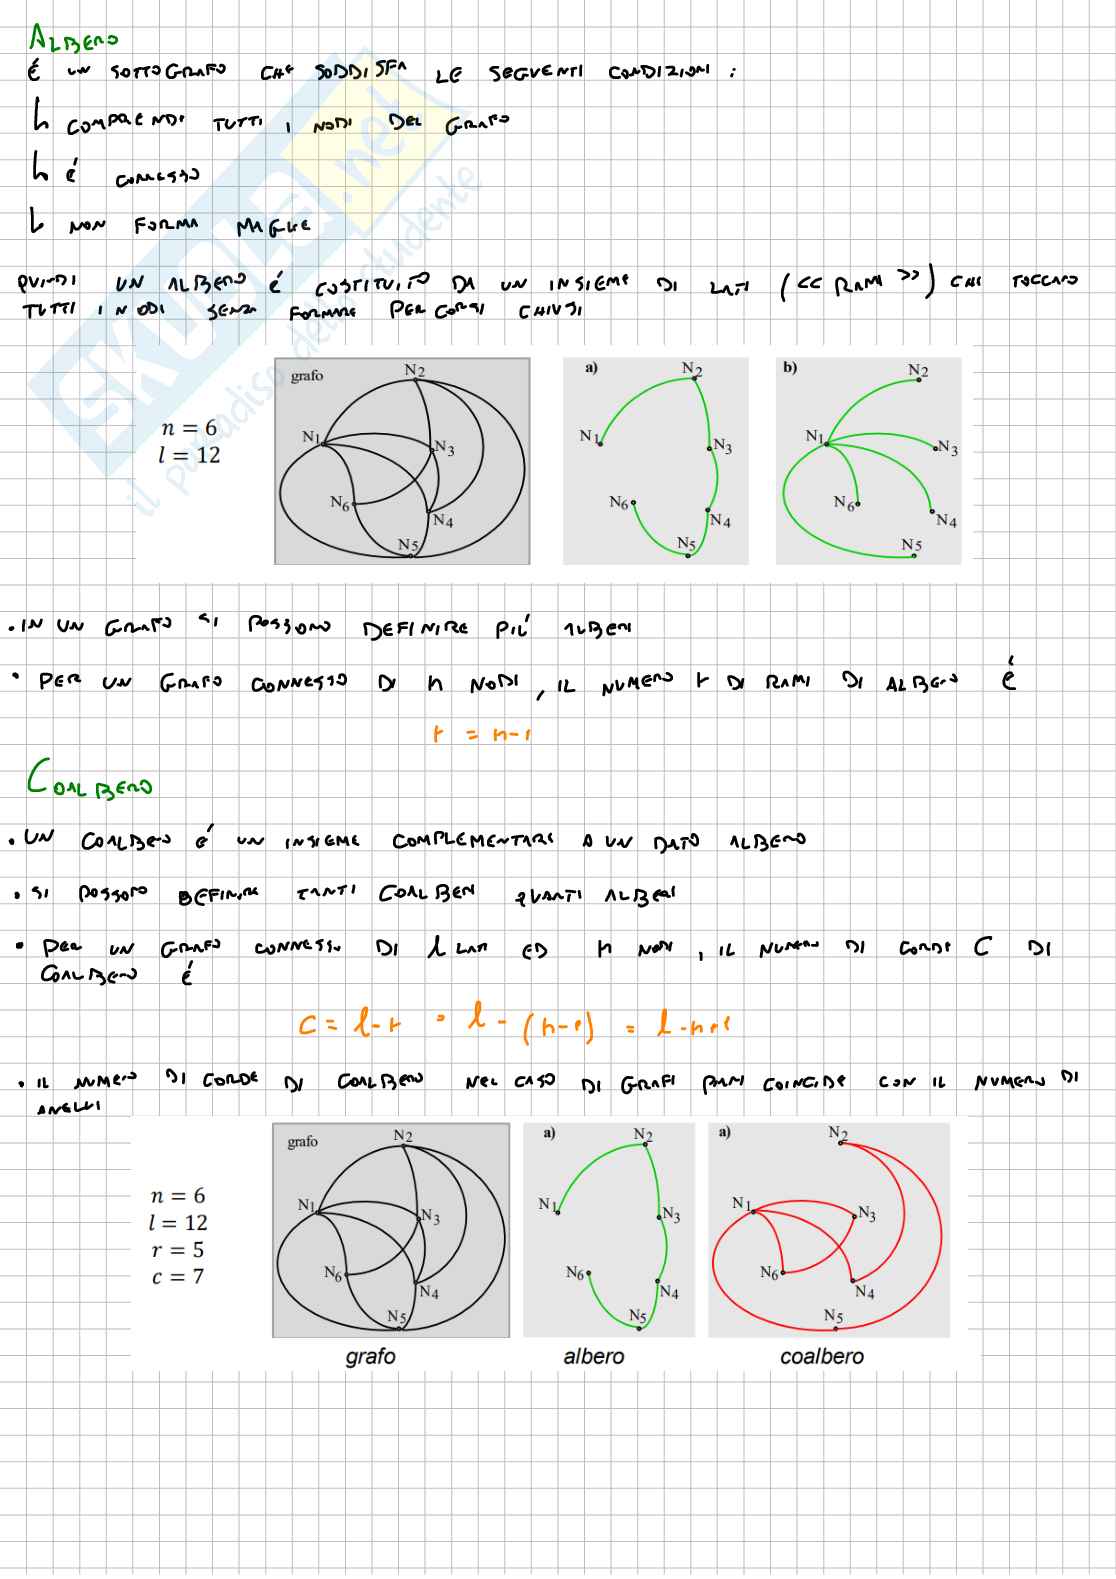 ALBERO
É UN SOTTOGRAFO CHE SODDISFA LE SEGUENTI CONDIZIONI :
COMPRENDE TUTTI I NODI DEL GRAFO
É CONNESSO
NON FORMA MAGLIE
QUINDI UN ALBERO É COSTITUITO DA UN INSIEME DI LATI (<< RAMI >>) CHE TOCCANO
TUTTI I NODI SENZA FORMARE PERCORSI CHIUSI
SKUOLA.net
il paradiso dello studente
n = 6
l = 12
grafo N2 N1 N3 N6 N4 N5
a) N2 N1 N3 N6 N4 N5
b) N2 N1 N3 N6 N4 N5
• IN UN GRAFO SI POSSONO DEFINIRE PIÚ ALBERI
• PER UN GRAFO CONNESSO DI n NODI, IL NUMERO r DI RAMI DI ALBERO É
r = n-1
COALBERO
• UN COALBERO É UN INSIEME COMPLEMENTARE A UN DATO ALBERO
• SI POSSONO DEFINIRE TANTI COALBERI QUANTI ALBERI
• PER UN GRAFO CONNESSO DI l LATI ED n NODI, IL NUMERO DI CORDE C DI
COALBERO É
C = l-r = l-(n-1) = l-n+1
• IL NUMERO DI CORDE DI COALBERO NEL CASO DI GRAFI PIANI COINCIDE CON IL NUMERO DI
ANELLI
n = 6
l = 12
r = 5
c = 7
grafo N2 N1 N3 N6 N4 N5
a) N2 N1 N3 N6 N4 N5
a) N2 N1 N3 N6 N4 N5
grafo albero coalbero